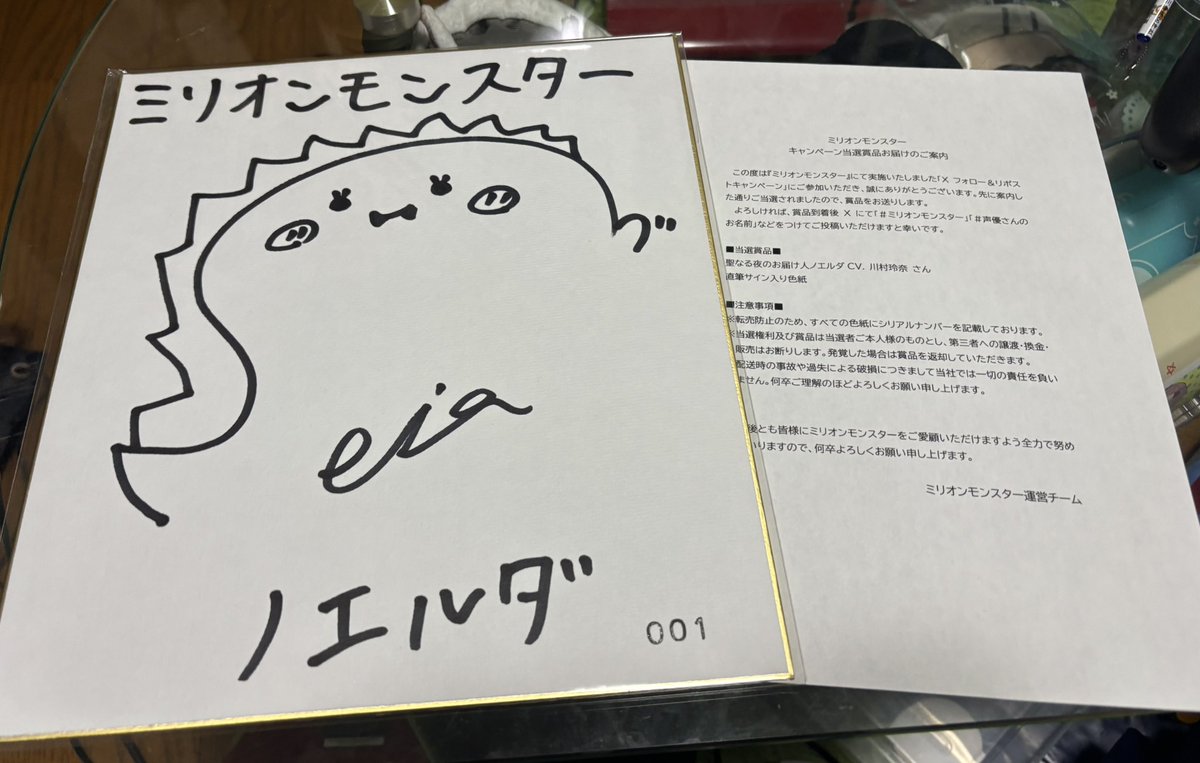 ミリオンモンスター
ノエルダ
001
ミリオンモンスター
キャンペーン当選賞品お届けのご案内
この度は『ミリオンモンスター』にて実施いたしました「X フォロー＆リポス
トキャンペーン」にご参加いただき、誠にありがとうございます。先に案内し
た通りご当選されましたので、賞品をお送りします。
よろしければ、賞品到着後 X にて「＃ミリオンモンスター」「＃声優さんの
お名前」などをつけてご投稿いただけますと幸いです。
■当選賞品■
聖なる夜のお届け人ノエルダ CV. 川村玲奈 さん
直筆サイン入り色紙
■注意事項■
※転売防止のため、すべての色紙にシリアルナンバーを記載しております。
※当選権利及び賞品は当選者ご本人様のものとし、第三者への譲渡・換金・
販売はお断りします。発覚した場合は賞品を返却していただきます。
配送時の事故や過失による破損につきまして当社では一切の責任を負い
ません。何卒ご理解のほどよろしくお願い申し上げます。
後とも皆様にミリオンモンスターをご愛顧いただけますよう全力で努め
りますので、何卒よろしくお願い申し上げます。
ミリオンモンスター運営チーム